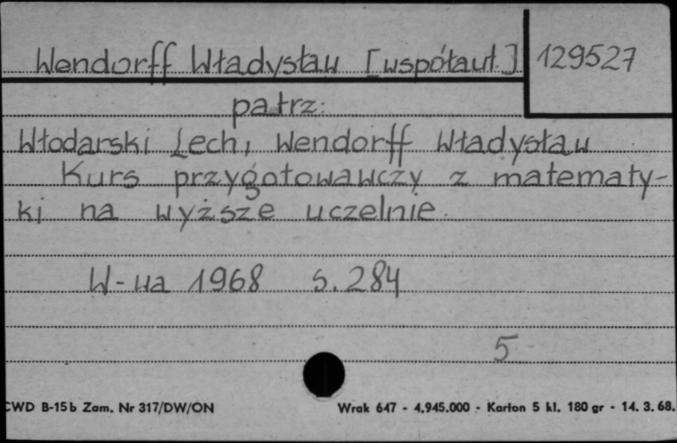 Wendorff Władysław [współaut.] 129527
patrz:
Włodarski Lech, Wendorff Władysław
Kurs przygotowawczy z matematy-
ki na wyższe uczelnie.
W-wa 1968 s. 284
5
CWD B-15b Zam. Nr 317/DW/ON Wrak 647 - 4.945.000 - Karton 5 kl. 180 gr - 14. 3. 68.